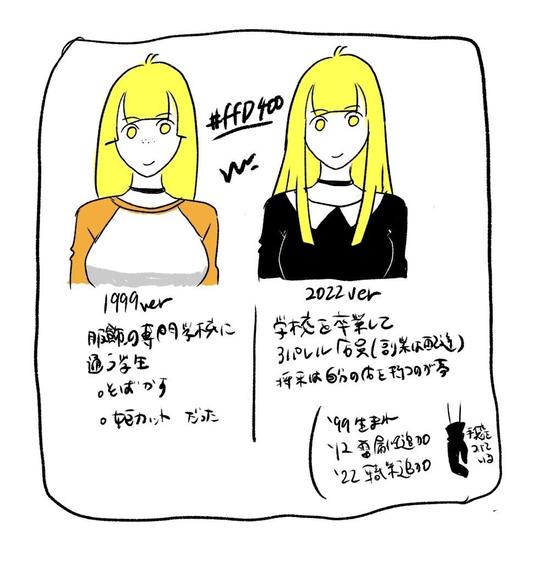 #ffD400
1999ver
服飾の専門学校に
通う学生
。そばかす
。姫カット だった
2022ver
学校を卒業して
アパレル店員(副業は配達)
将来は自分の店を持つのが夢
'99 生まれ
'12 雷属性追加
'22 職業追加
手袋を
して
いる